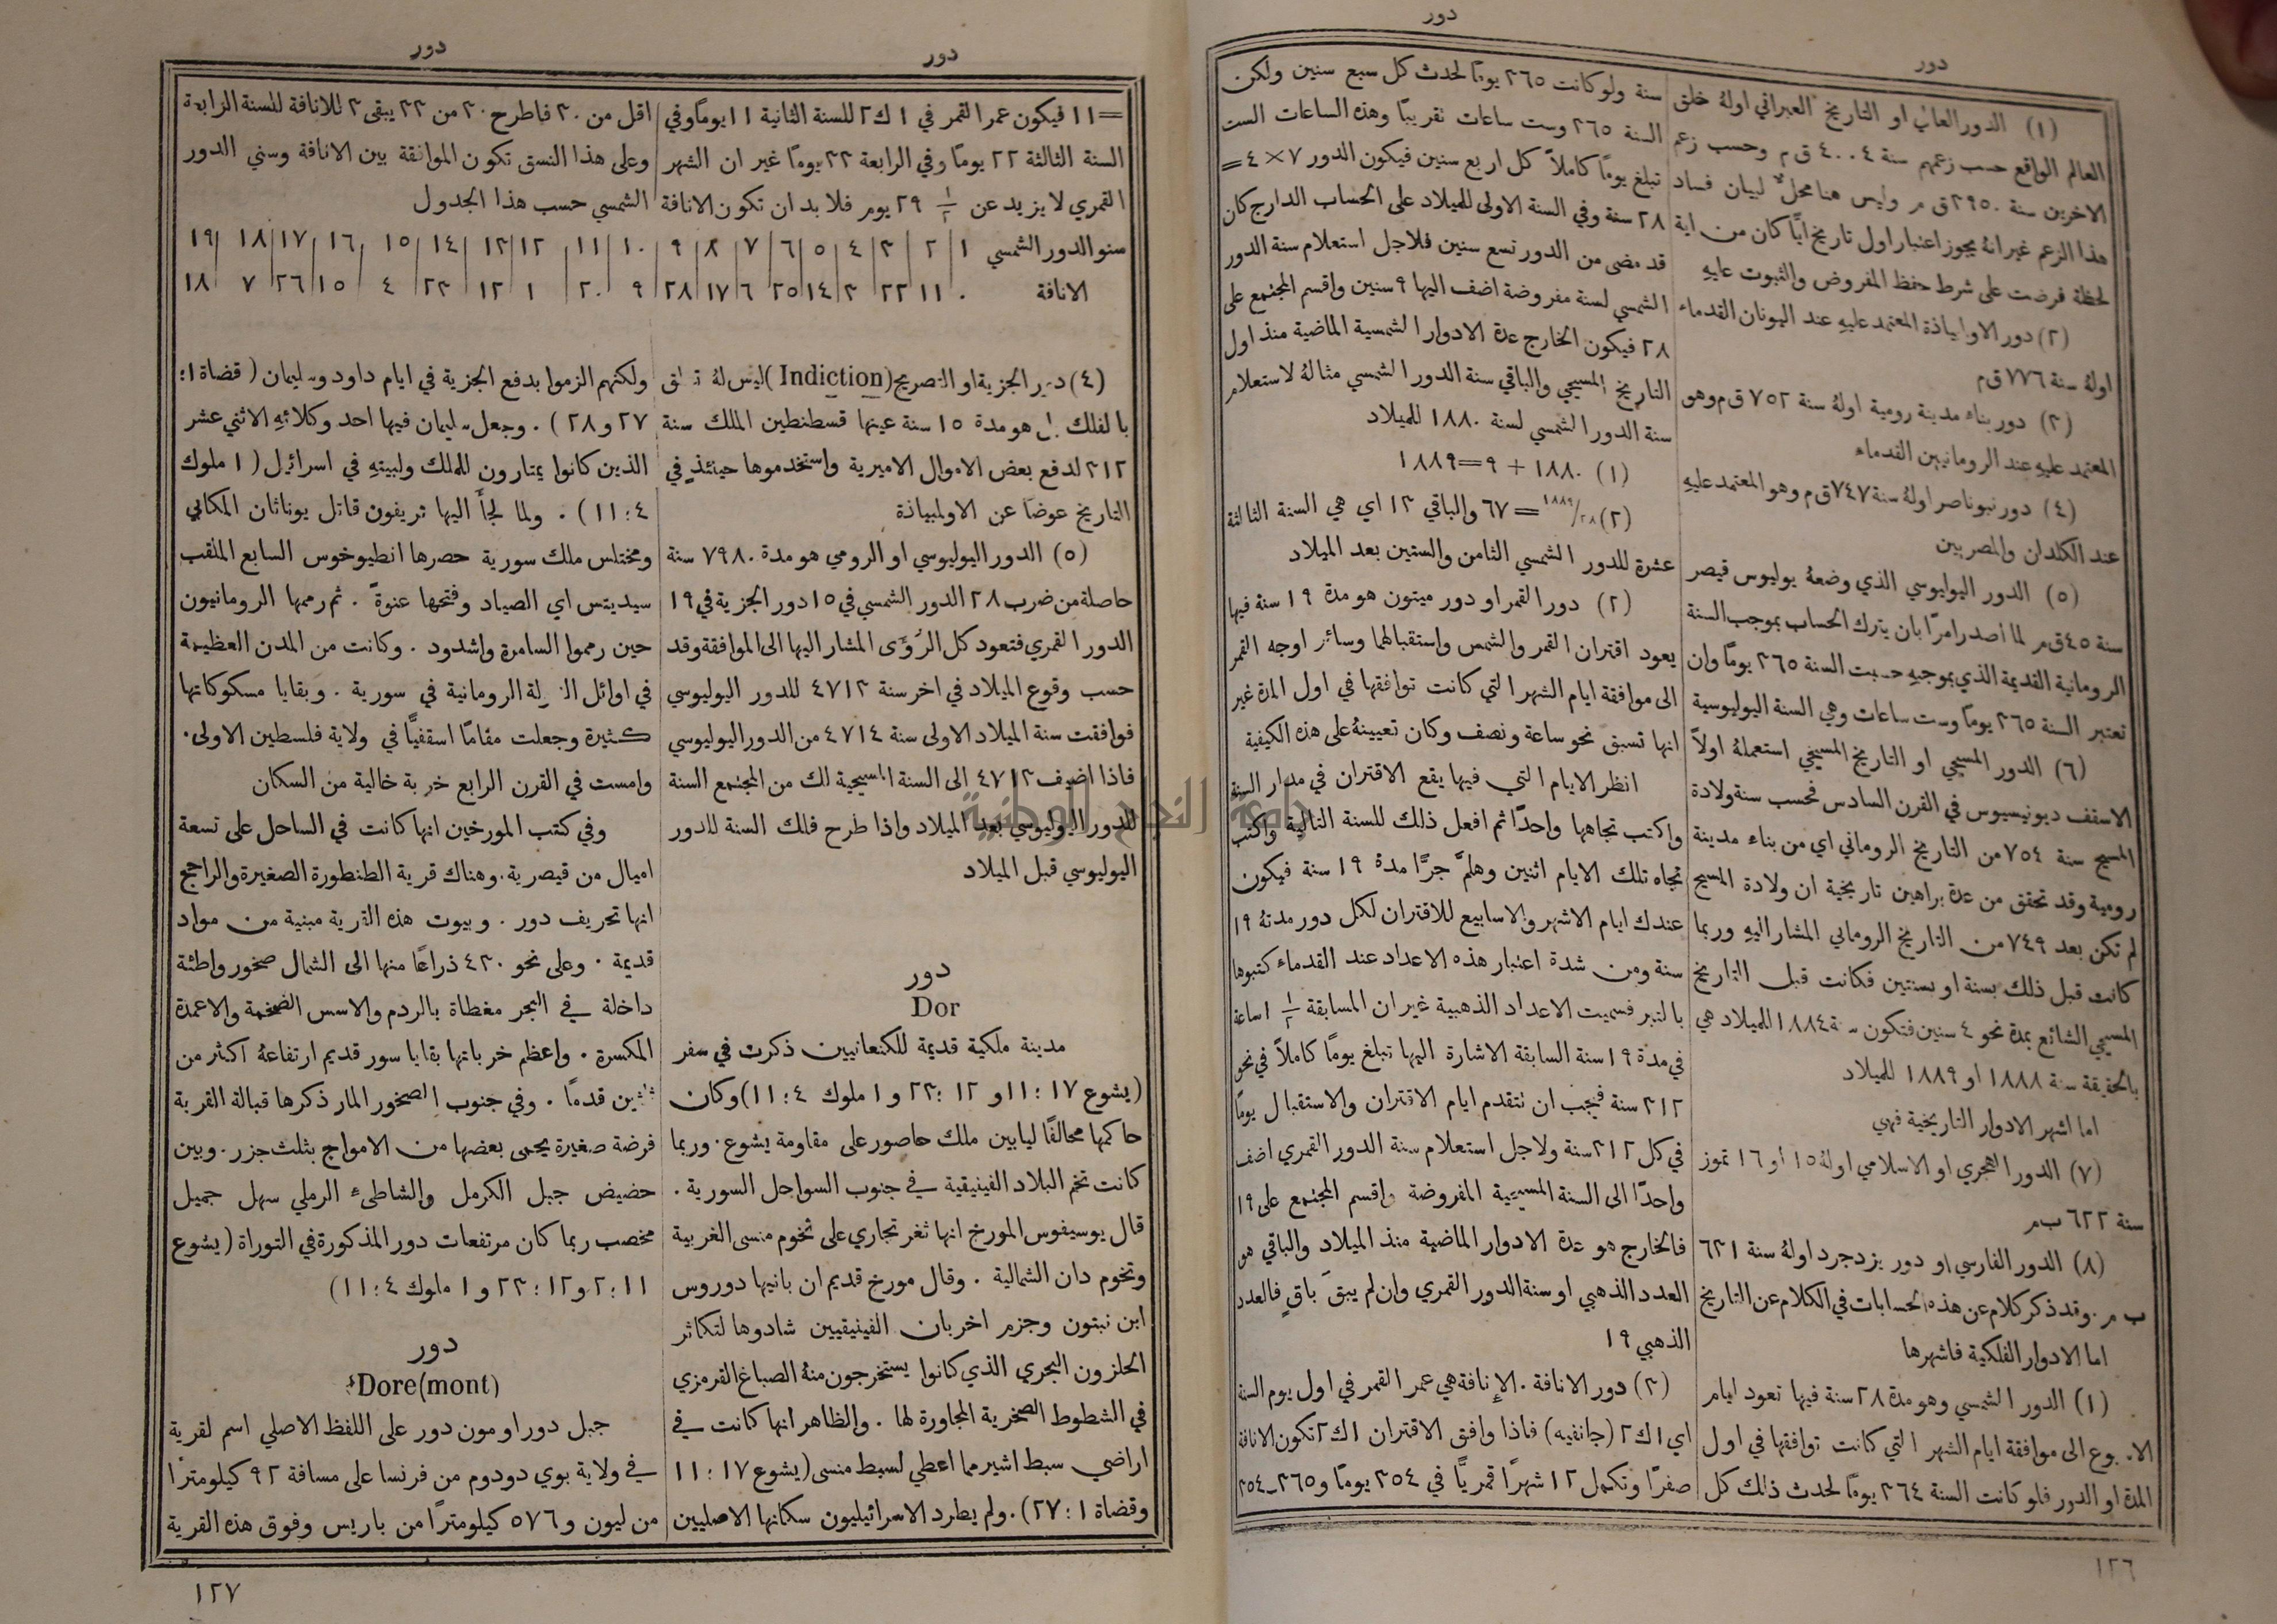 دور
دور
(١) الدور العالمي او التاريخ العبراني اولهُ خلق
العالم الواقع حسب زعمهم سنة ٤٠٠٤ ق م وحسب زعم
الاخرين سنة ٢٩٥٠ ق م وليس هنا محلٌ لبيان فساد
هذا الزعم غير انهُ يجوز اعتبار اول تاريخ ايًّا كان من اية
لحظة فرضت على شرط حفظ المفروض والثبوت عليهِ
(٢) دور الاولمبياذة المعتمد عليهِ عند اليونان القدماء
اولهُ سنة ٧٧٦ ق م
(٣) دور بناء مدينة رومية اولهُ سنة ٧٥٣ ق م وهو
المعتمد عليهِ عند الرومانيين القدماء
(٤) دور نبوناصر اولهُ سنة ٧٤٧ ق م وهو المعتمد عليهِ
عند الكلدان والمصريين
(٥) الدور اليوليوسي الذي وضعهُ يوليوس قيصر
سنة ٤٥ ق م لما اصدر امرًا بان يترك الحساب بموجب السنة
الرومانية القديمة الذي بموجبهِ حسبت السنة ٣٦٥ يومًا وان
تعتبر السنة ٣٦٥ يومًا وست ساعات وهي السنة اليوليوسية
(٦) الدور المسيحي او التاريخ المسيحي استعملهُ اولاً
الاسقف ديونيسيوس في القرن السادس فحسب سنة ولادة
المسيح سنة ٧٥٤ من التاريخ الروماني اي من بناء مدينة
رومية وقد تحقق من عدة براهين تاريخية ان ولادة المسيح
لم تكن بعد ٧٤٩ من التاريخ الروماني المشار اليهِ وربما
كانت قبل ذلك بسنة او بسنتين فكانت قبل التاريخ
المسيحي الشائع بمدة نحو ٤ سنين فتكون سنة ١٨٨٤ للميلاد هي
بالحقيقة سنة ١٨٨٨ او ١٨٨٩ للميلاد
اما اشهر الادوار التاريخية فهي
(٧) الدور الهجري او الاسلامي اولهُ ١٥ او ١٦ تموز
سنة ٦٢٢ ب م
(٨) الدور الفارسي او دور يزدجرد اولهُ سنة ٦٣١
ب م. وقد ذكر كلام عن هذه الحسابات في الكلام عن التاريخ
اما الادوار الفلكية فاشهرها
(١) الدور الشمسي وهو مدة ٢٨ سنة فيها تعود ايام
الاسبوع الى موافقة ايام الشهر التي كانت توافقها في اول
المدة او الدور فلو كانت السنة ٣٦٤ يومًا لحدث ذلك كل
سنة ولو كانت ٣٦٥ يومًا لحدث كل سبع سنين ولكن
السنة ٣٦٥ وست ساعات تقريبًا وهذه الساعات الست
تبلغ يومًا كاملاً كل اربع سنين فيكون الدور ٧×٤=
٢٨ سنة وفي السنة الاولى للميلاد على الحساب الدارج كان
قد مضى من الدور تسع سنين فلاجل استعلام سنة الدور
الشمسي لسنة مفروضة اضف اليها ٩ سنين واقسم المجتمع على
٢٨ فيكون الخارج عدة الادوار الشمسية الماضية منذ اول
التاريخ المسيحي والباقي سنة الدور الشمسي مثالهُ لاستعلام
سنة الدور الشمسي لسنة ١٨٨٠ للميلاد
(١) ١٨٨٠ + ٩ = ١٨٨٩
(٢) ١٨٨٩/٢٨ = ٦٧ والباقي ١٣ اي هي السنة الثالثة
عشرة للدور الشمسي الثامن والستين بعد الميلاد
(٢) دور القمر او دور ميتون هو مدة ١٩ سنة فيها
يعود اقتران القمر والشمس واستقبالهما وسائر اوجه القمر
الى موافقة ايام الشهر التي كانت توافقها في اول المدة غير
انها تسبق نحو ساعة ونصف وكان تعيينهُ على هذه الكيفية
انظر الايام التي فيها يقع الاقتران في مدار السنة
واكتب تجاهها واحدًا ثم افعل ذلك للسنة التالية واكتب
تجاه تلك الايام اثنين وهلمَّ جرًّا مدة ١٩ سنة فيكون
عندك ايام الاشهر والاسابيع للاقتران لكل دور مدتهُ ١٩
سنة ومن شدة اعتبار هذه الاعداد عند القدماء كتبوها
بالتبر فسميت الاعداد الذهبية غير ان المسابقة ١ ١/٢ ساعة
في مدة ١٩ سنة السابقة الاشارة اليها تبلغ يومًا كاملاً في نحو
٣١٢ سنة فيجب ان تتقدم ايام الاقتران والاستقبال يومًا
في كل ٣١٢ سنة ولاجل استعلام سنة الدور القمري اضف
واحدًا الى السنة المسيحية المفروضة واقسم المجتمع على ١٩
فالخارج هو عدة الادوار الماضية منذ الميلاد والباقي هو
العدد الذهبي او سنة الدور القمري وان لم يبقَ باقٍ فالعدد
الذهبي ١٩
(٣) دور الانافة . الإنافة هي عمر القمر في اول يوم السنة
اي ١ ك٢ (جانفيه) فاذا وافق الاقتران ١ ك٢ تكون الانافة
صفرًا وتكمل ١٢ شهرًا قمريًّا في ٣٥٤ يومًا و٣٦٥-٣٥٤
١٢٦
دور
دور
=١١ فيكون عمر القمر في ١ ك٢ للسنة الثانية ١١ يومًا وفي
السنة الثالثة ٢٢ يومًا وفي الرابعة ٣٣ يومًا غير ان الشهر
القمري لا يزيد عن ١/٢ ٢٩ يوم فلا بد ان تكون الانافة
اقل من ٣٠ فاطرح ٣٠ من ٣٣ يبقى ٣ للانافة للسنة الرابعة
وعلى هذا النسق تكون الموافقة بين الانافة وسني الدور
الشمسي حسب هذا الجدول
سنو الدور الشمسي ١ ٢ ٣ ٤ ٥ ٦ ٧ ٨ ٩ ١٠ ١١ ١٢ ١٣ ١٤ ١٥ ١٦ ١٧ ١٨ ١٩
الانافة ٠ ١١ ٢٢ ٣ ١٤ ٢٥ ٦ ١٧ ٢٨ ٩ ٢٠ ١ ١٢ ٢٣ ٤ ١٥ ٢٦ ٧ ١٨
(٤) دور الجزية او التصريح (Indiction) ليس لهُ تعلق
بالفلك بل هو مدة ١٥ سنة عينها قسطنطين الملك سنة
٣١٢ لدفع بعض الاموال الاميرية واستخدموها حينئذٍ في
التاريخ عوضًا عن الاولمبياذة
(٥) الدور اليوليوسي او الرومي هو مدة ٧٩٨٠ سنة
حاصلة من ضرب ٢٨ الدور الشمسي في ١٥ دور الجزية في ١٩
الدور القمري فتعود كل الرُؤَى المشار اليها الى الموافقة وقد
حسب وقوع الميلاد في اخر سنة ٤٧١٣ للدور اليوليوسي
فوافقت سنة الميلاد الاولى سنة ٤٧١٤ من الدور اليوليوسي
فاذا اضيف ٤٧١٣ الى السنة المسيحية لك من المجتمع السنة
للدور اليوليوسي بعد الميلاد واذا طرح فلك السنة للدور
اليوليوسي قبل الميلاد
دور
Dor
مدينة ملكية قديمة للكنعانيين ذكرت في سفر
(يشوع ١٧: ١١ و ١٢: ٢٣ و ١ ملوك ٤: ١١) وكان
حاكمها محالفًا ليابين ملك حاصور على مقاومة يشوع . وربما
كانت تخم البلاد الفينيقية في جنوب السواحل السورية .
قال يوسيفوس المورخ انها ثغر تجاري على تخوم منسى الغربية
وتخوم دان الشمالية . وقال مورخ قديم ان بانيها دوروس
ابن نبتون وجزم اخر بان الفينيقيين شادوها لتكاثر
الحلزون البحري الذي كانوا يستخرجون منهُ الصباغ القرمزي
في الشطوط الصخرية المجاورة لها . والظاهر انها كانت في
اراضي سبط اشير مما اعطي لسبط منسى (يشوع ١٧: ١١
وقضاة ١: ٢٧) . ولم يطرد الاسرائيليون سكانها الاصليين
ولكنهم الزموا بدفع الجزية في ايام داود وسليمان (قضاة ١:
٢٧ و ٢٨) . وجعل سليمان فيها احد وكلائهِ الاثني عشر
الذين كانوا يمتارون للملك ولبيتهِ في اسرائيل (١ ملوك
٤: ١١) . ولما لجأَ اليها تريفون قاتل يوناثان المكابي
ومختلس ملك سورية حصرها انطيوخوس السابع الملقب
سيديتس اي الصياد وفتحها عنوةً . ثم رممها الرومانيون
حين رمموا السامرة واشدود . وكانت من المدن العظيمة
في اوائل الدولة الرومانية في سورية . وبقايا مسكوكاتها
كثيرة وجعلت مقامًا اسقفيًّا في ولاية فلسطين الاولى .
وامست في القرن الرابع خربة خالية من السكان
وفي كتب المورخين انها كانت في الساحل على تسعة
اميال من قيصرية . وهناك قرية الطنطورة الصغيرة والراجح
انها تحريف دور . وبيوت هذه القرية مبنية من مواد
قديمة . وعلى نحو ٤٣٠ ذراعًا منها الى الشمال صخور واطئة
داخلة في البحر مغطاة بالردم والاسس الضخمة والاعمدة
المكسرة . واعظم خرباتها بقايا سور قديم ارتفاعهُ اكثر من
ثلثين قدمًا . وفي جنوب الصخور المار ذكرها قبالة القرية
فرضة صغيرة يحمى بعضها من الامواج بثلث جزر . وبين
حضيض جبل الكرمل والشاطىء الرملي سهل جميل
مخصب ربما كان مرتفعات دور المذكورة في التوراة (يشوع
١١: ٢ و ١٢: ٢٣ و ١ ملوك ٤: ١١)
دور
Dore(mont)
جبل دور او مون دور على اللفظ الاصلي اسم لقرية
في ولاية بوي دو دوم من فرنسا على مسافة ٩٢ كيلومترًا
من ليون و ٥٧٦ كيلومترًا من باريس وفوق هذه القرية
١٢٧
جامعة النجاح الوطنية